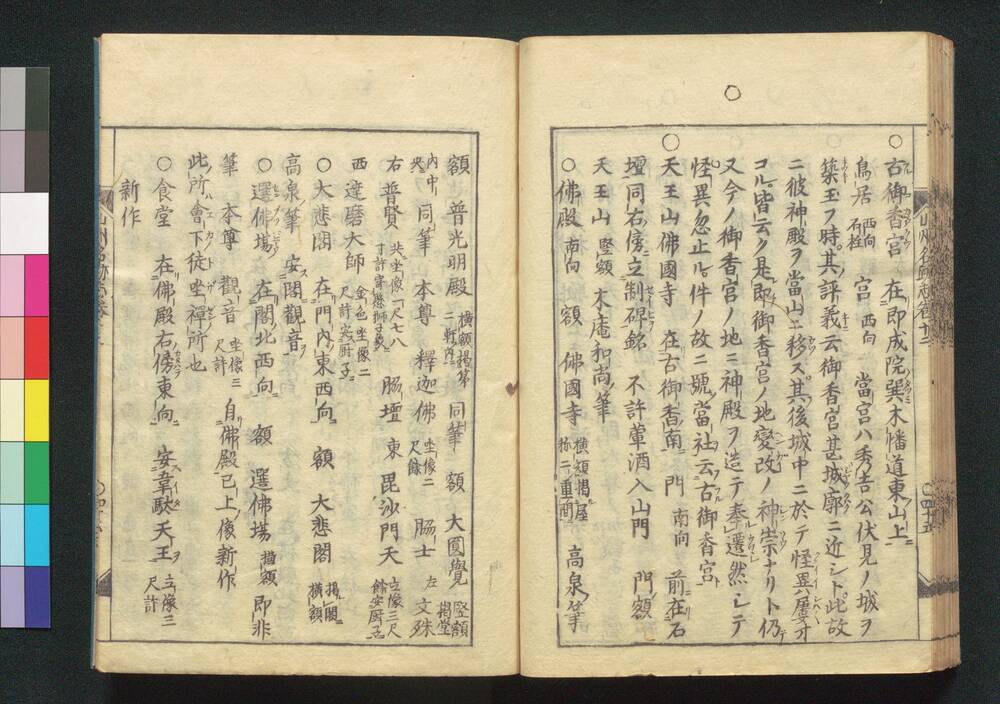 ○古御香宮 在即成院巽木幡道東山上
鳥居 西向石柱 宮 西向 當宮ハ秀吉公伏見ノ城ヲ
築玉フ時其評義云御香宮甚城廓ニ近シト此故
ニ彼神殿ヲ當山ニ移ス其後城中ニ於テ怪異屢有
コル皆云ク是即御香宮ノ地變改ノ神祟ナリト仍テ
又今ノ御香宮ノ地ニ神殿ヲ造テ奉遷然シテ
怪異忽止ル件ノ故ニ號當社云古御香宮
○天王山佛國寺 在古御香南 門 南向 前在石
壇同右傍立制碑銘 不許葷酒入山門 門額
天王山 竪額 木庵和尚筆
○佛殿 南向 額 佛國寺 橫額揭屋祢二重間 高泉筆
山州名跡志卷十二
○四十五
額 普光明殿 橫額揭第二軒內 同筆 額 大圓覺 竪額揭堂
內中央 同筆 本尊 釋迦佛 坐像二尺餘 脇士 左 文殊
右 普賢 共坐像一尺七八寸許 脇壇 東 毘沙門天 立像三尺餘安厨子
西 達磨大師 金色坐像二尺許安厨子
○大悲閣 在門內東西向 額 大悲閣 揭閣橫額
高泉筆 安閣觀音
○選佛場 在閣北西向 額 選佛場 橫額 即非
筆 本尊 觀音 坐像三尺許 自佛殿已上像新作
此所會下徒坐禪所也
○食堂 在佛殿右傍東向 安韋駄天王 立像三尺許
新作